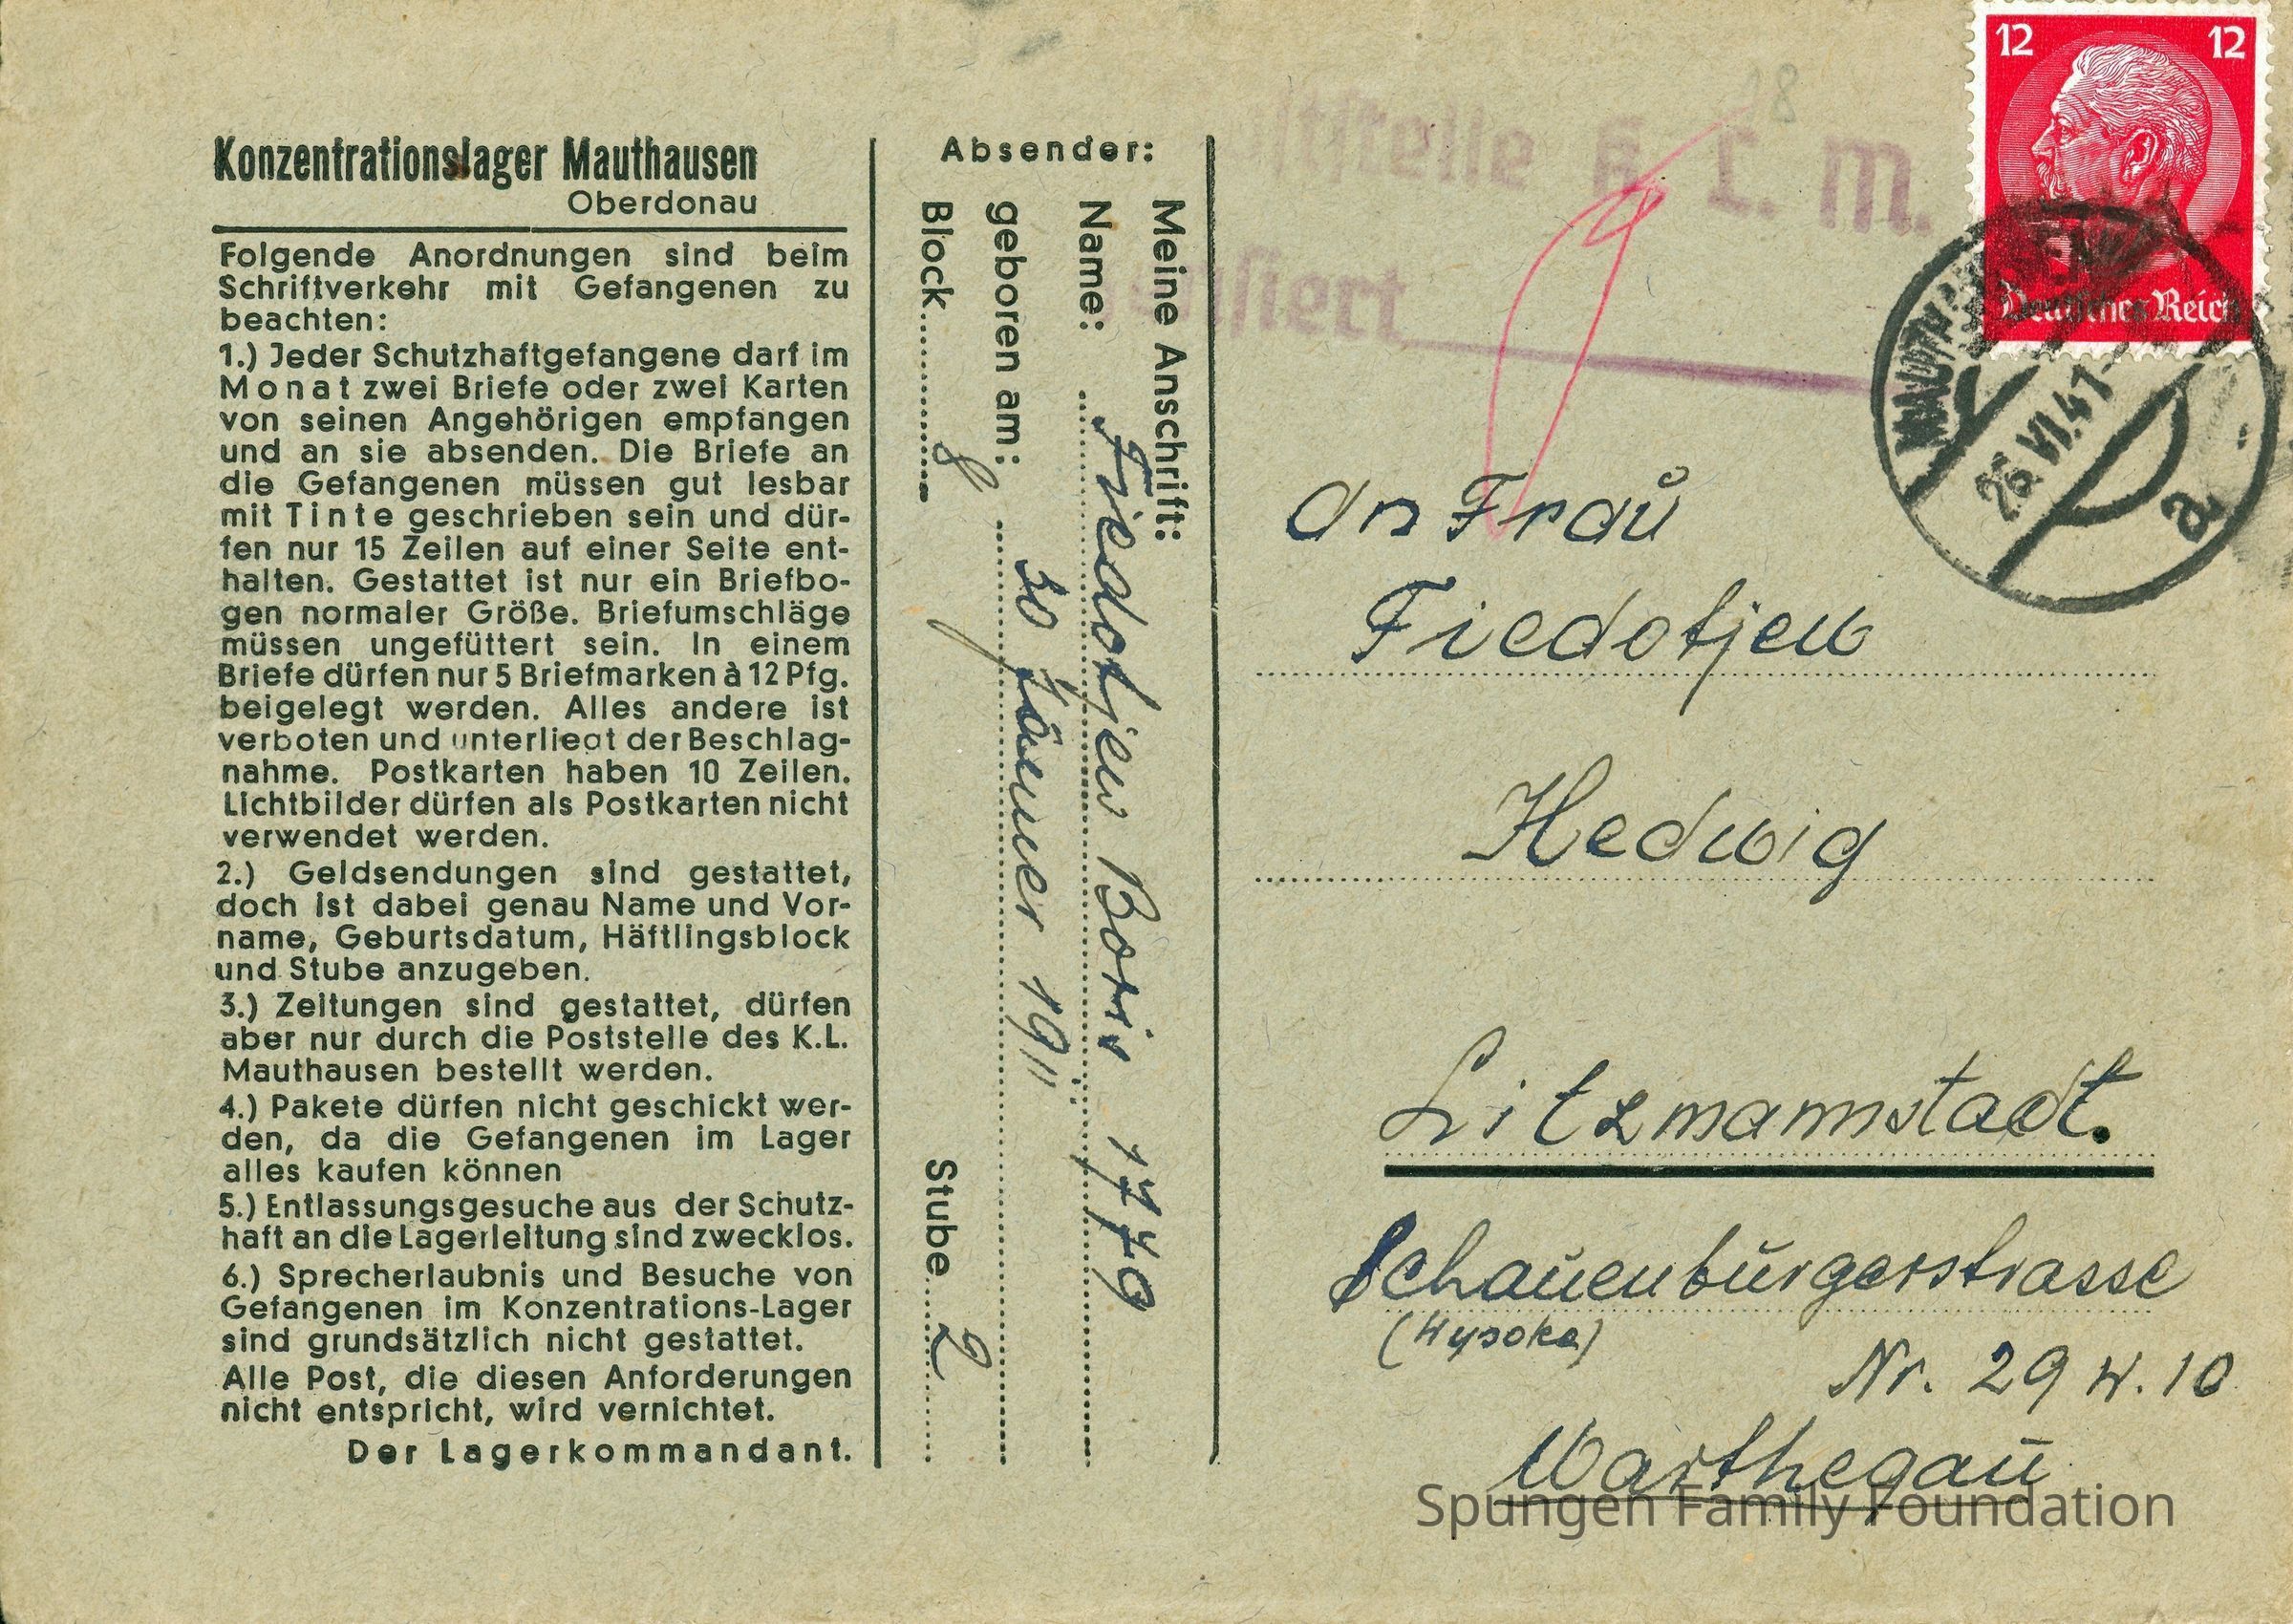 Konzentrationslager Mauthausen
Oberdonau
Folgende Anordnungen sind beim
Schriftverkehr mit Gefangenen zu
beachten:
1.) Jeder Schutzhaftgefangene darf im
Monat zwei Briefe oder zwei Karten
von seinen Angehörigen empfangen
und an sie absenden. Die Briefe an
die Gefangenen müssen gut lesbar
mit Tinte geschrieben sein und dür-
fen nur 15 Zeilen auf einer Seite ent-
halten. Gestattet ist nur ein Briefbo-
gen normaler Größe. Briefumschläge
müssen ungefüttert sein. In einem
Briefe dürfen nur 5 Briefmarken à 12 Pfg.
beigelegt werden. Alles andere ist
verboten und unterliegt der Beschlag-
nahme. Postkarten haben 10 Zeilen.
Lichtbilder dürfen als Postkarten nicht
verwendet werden.
2.) Geldsendungen sind gestattet,
doch ist dabei genau Name und Vor-
name, Geburtsdatum, Häftlingsblock
und Stube anzugeben.
3.) Zeitungen sind gestattet, dürfen
aber nur durch die Poststelle des K.L.
Mauthausen bestellt werden.
4.) Pakete dürfen nicht geschickt wer-
den, da die Gefangenen im Lager
alles kaufen können
5.) Entlassungsgesuche aus der Schutz-
haft an die Lagerleitung sind zwecklos.
6.) Sprecherlaubnis und Besuche von
Gefangenen im Konzentrations-Lager
sind grundsätzlich nicht gestattet.
Alle Post, die diesen Anforderungen
nicht entspricht, wird vernichtet.
Der Lagerkommandant.
Absender:
Meine Anschrift:
Name: Fiedotjew Boris 1779
geboren am: 30 Jäner 1911
Block 8 Stube 2
K. L. M.
12 12
Deutsches Reich
26.VI.41
a
An Frau
Fiedotjew
Hedwig
Litzmannstadt.
Schauenburgerstrasse
(Wysoka)
Nr. 29 W. 10
Warthegau
Spungen Family Foundation